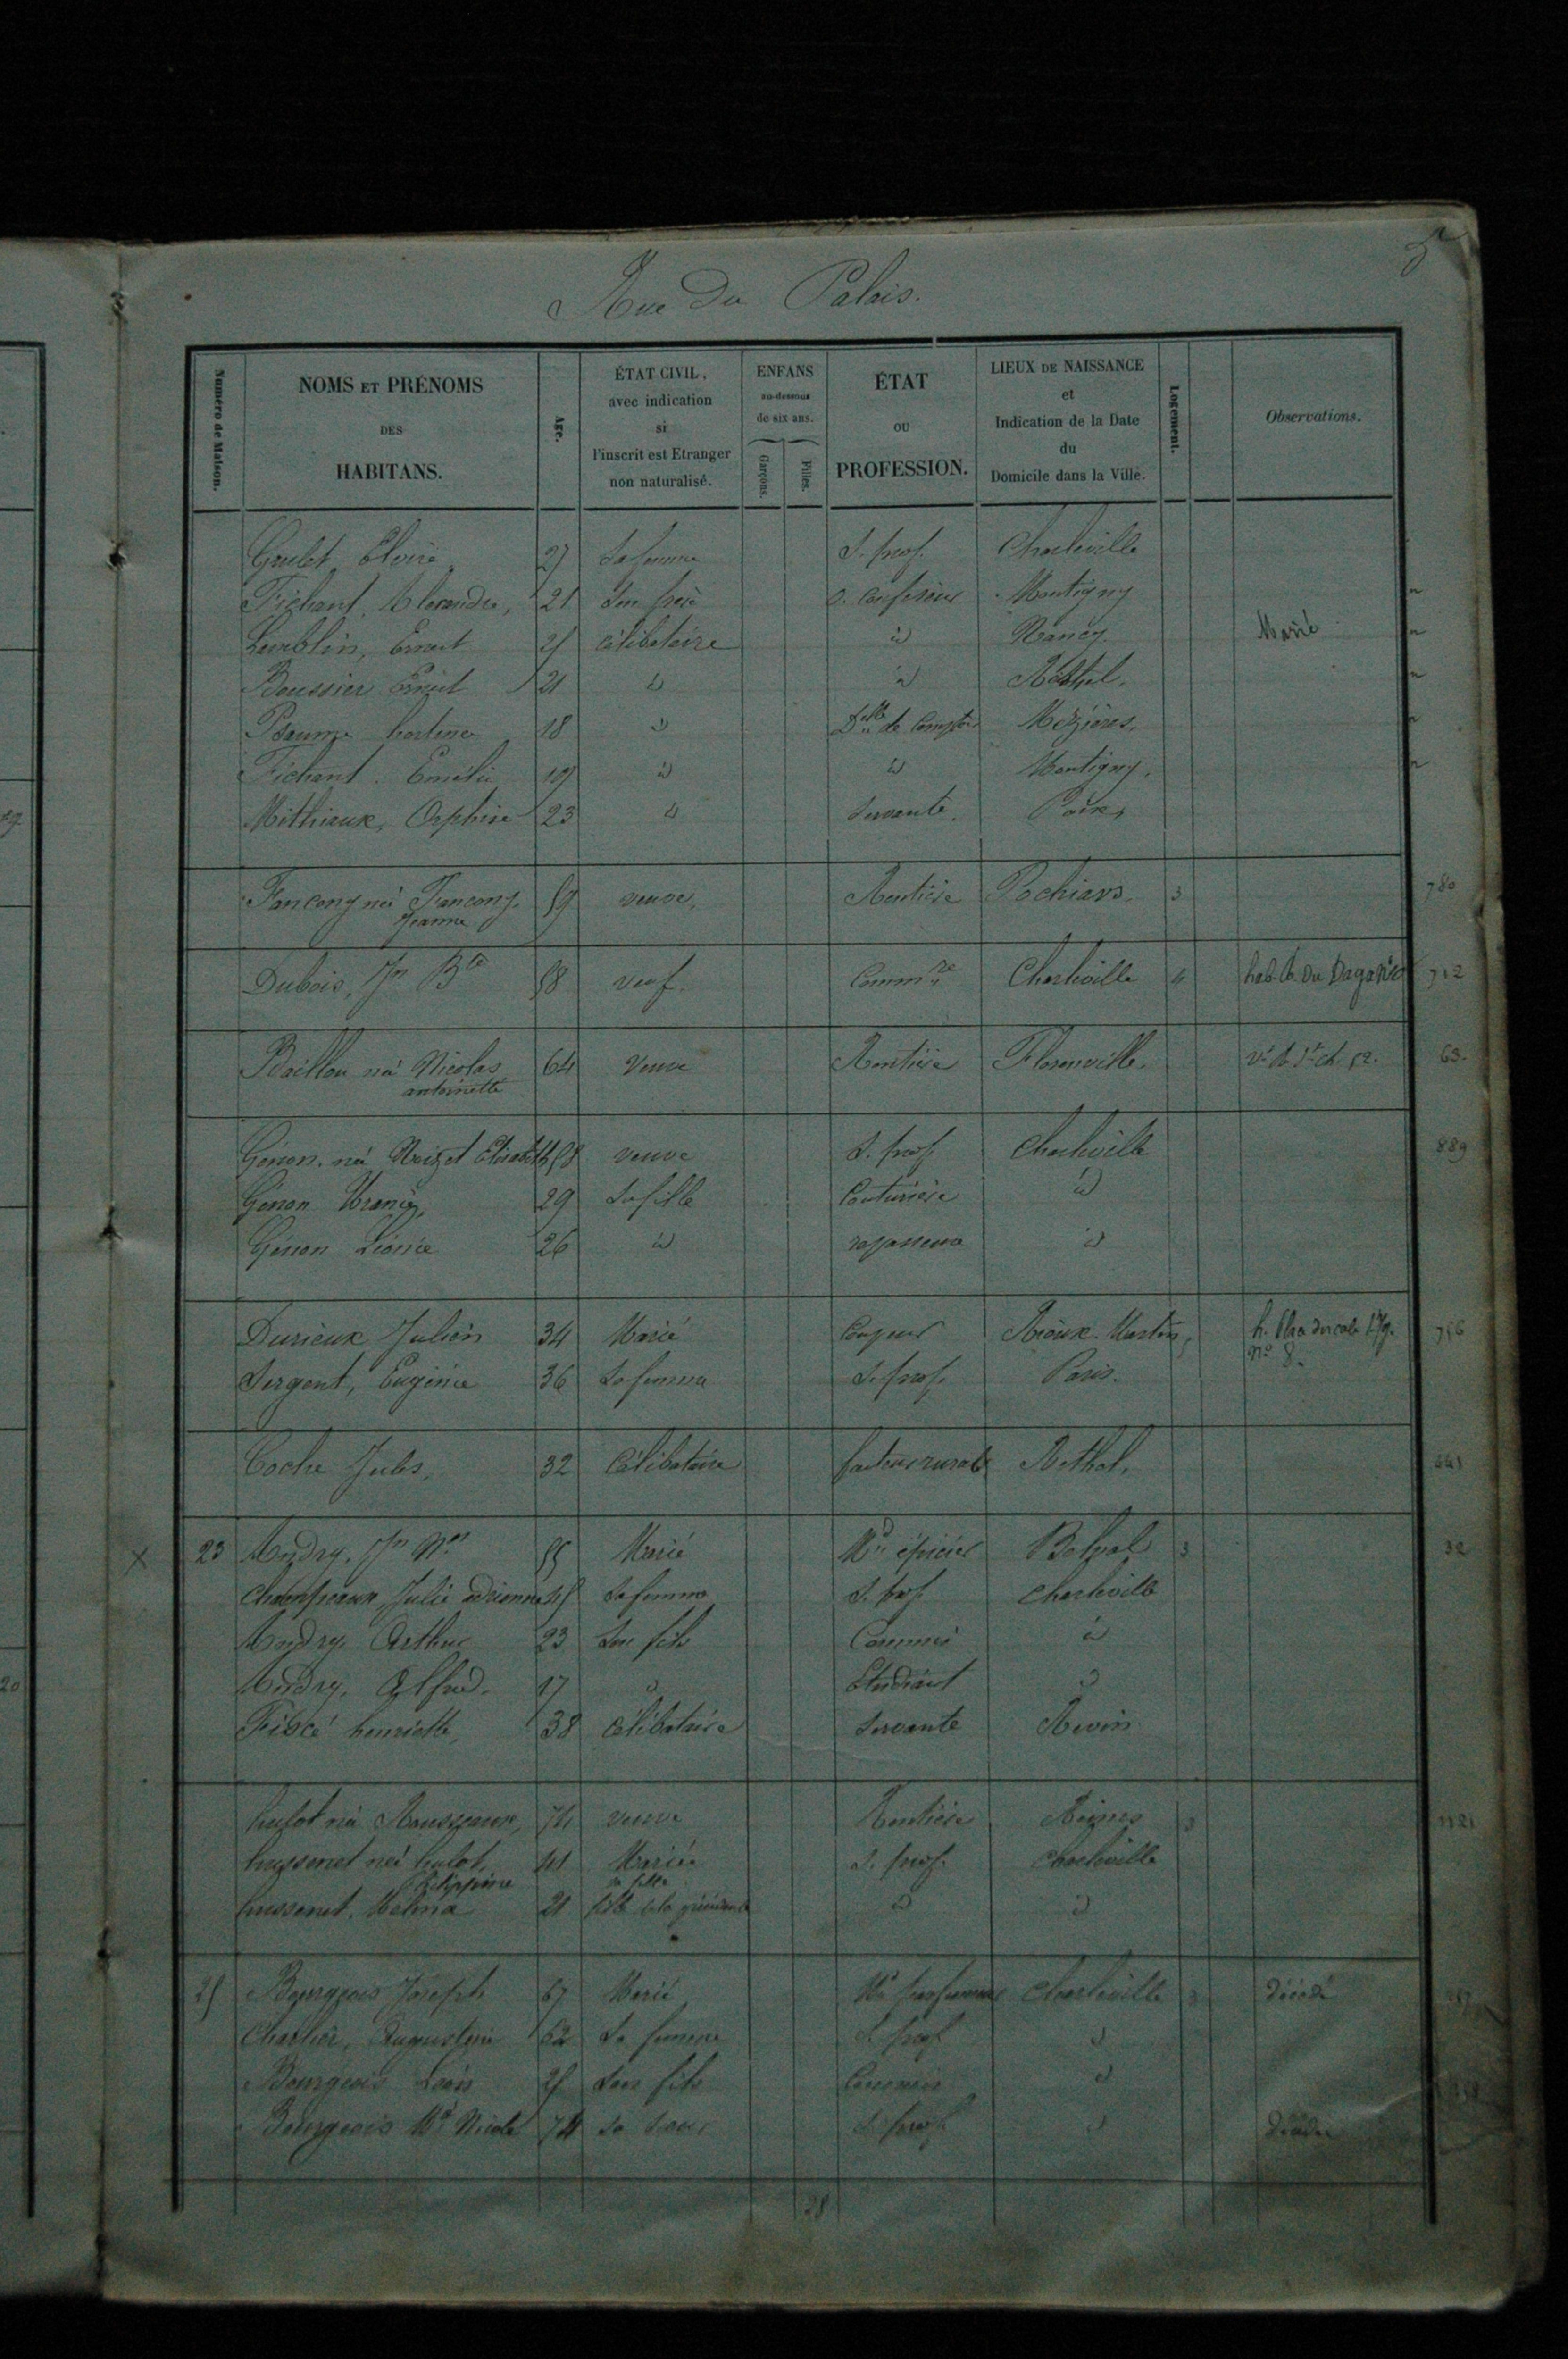 5
Rue du Palais.
Numéro de Maison.
NOMS ET PRÉNOMS
DES
HABITANS.
Age.
ÉTAT CIVIL,
avec indication
si
l'inscrit est Etranger
non naturalisé.
ENFANS
au-dessous
de six ans.
Garçons.
Filles.
ÉTAT
OU
PROFESSION.
LIEUX DE NAISSANCE
et
Indication de la Date
du
Domicile dans la Ville.
Logement.
Observations.
Goulet, Elvire 27 Sa femme S. prof. Charleville
Fichant, Alexandre, 21 Son frère o. Confiseur Montigny
Lamblin, Ernest 25 célibataire id Nancy. Marié
Boussier Ernest 21 id id Rethel.
Psaume hortense 18 id Delle de Comptoir Mézières.
Fichant. Emélie 19 id id Montigny.
Mithiaux, Orphise 23 id Servante. Poix,
Françony née Françony. 59 veuve, Rentière 3 780
Jeanne
Dubois, Jn Bte 58 veuf. Charleville 4 712
Baillon née Nicolas 64 Veuve Rentière Florenville. 63.
antoinette
Génon. née Noizet Elisabeth 58 veuve S. prof. Charleville 889
Génon Uranie, 29 Sa fille Couturière id
Génon Léonie 26 id repasseuse id
Durieux Julien 34 Marié Coupeur 756
no 8.
Sergent, Eugénie 36 Sa femme S. prof. Paris.
Coche Jules, 32 Célibataire facteur rural Rethel.
23 Andry, Jn Nas 55 Marié Md épicier Belval 3 32
Champeaux Julie adrienne 45 Sa femme S. prof. Charleville
Andry. Arthur 23 Son fils Commis id
Andry. Alfred. 17 id Etudiant id
henriette, 38 Célibataire Servante Revin
hulot née Rousseaux, 74 veuve Rentière Reims 3 1121
hussenet née hulot, 41 Mariée S. prof. Charleville
Philippine sa fille
hussenet. Mélina 21 fille de la précédente id id
25 Bourgeois Joseph 67 Marié Md parfumeur Charleville 3 Décédé
Charlier, Augustine 62 Sa femme S. prof. id
Bourgeois Léon 25 Son fils Commis id
Bourgeois Me Nicole 74 Sa Sœur S. prof. id Décédée
28